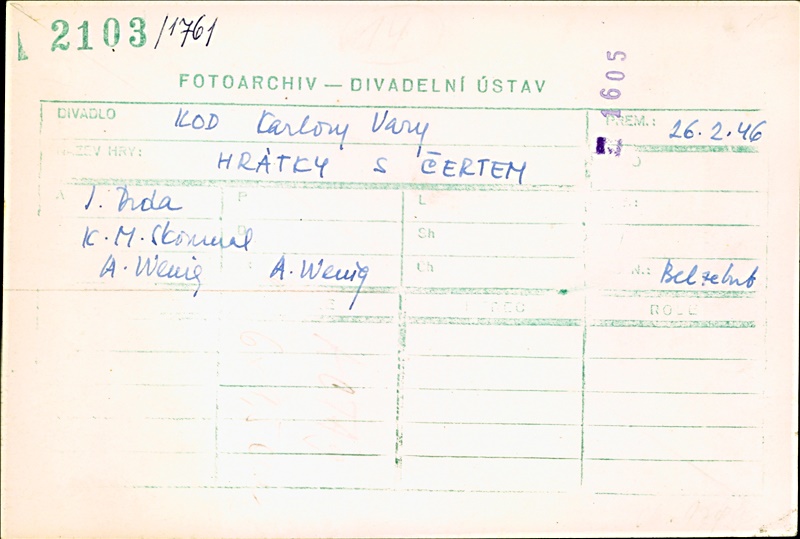 2103/1761
1605
FOTOARCHIV — DIVADELNÍ ÚSTAV
DIVADLO KOD Karlovy Vary PREM.: 26.2.46
NÁZEV HRY: HRÁTKY S ČERTEM
A J. Drda P L
K.M. Skoumal Sh
A. Wenig A. Wenig Ch N.: Belzebub
ROLE